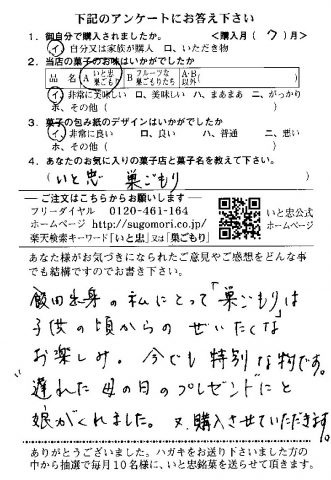 下記のアンケートにお答え下さい
1. 御自分で購入されましたか。 <購入月(7)月>
イ、自分又は家族が購入 ロ、いただき物
2. 当店の菓子のお味はいかがでしたか
品名 A いと忠巣ごもり B フルーツな巣ごもりたち A・B以外( )
イ、非常に美味しい ロ、美味しい ハ、まあまあ ニ、がっかり
ホ、その他( )
3. 菓子の包み紙のデザインはいかがでしたか
イ、非常に良い ロ、良い ハ、普通 ニ、悪い
ホ、その他( )
4. あなたのお気に入りの菓子店と菓子名を教えて下さい。
(いと忠 巣ごもり)
ご注文はこちらからお願いします
フリーダイヤル 0120-461-164
ホームページ http://sugomori.co.jp/
楽天検索キーワード「いと忠」又は「巣ごもり」
いと忠公式
ホームページ
あなた様がお気づきになられたご意見やご感想をどんな事
でも結構ですのでお書き下さい。
飯田出身の私にとって「巣ごもり」は
子供の頃からのぜいたくな
お楽しみ。今でも特別な物です。
"遅れた母の日のプレゼント"にと
娘がくれました。又、購入させていただきます。
ありがとうございました。ハガキをお送り下さいました方の
中から抽選で毎月10名様に、いと忠銘菓を送らせて頂きます。